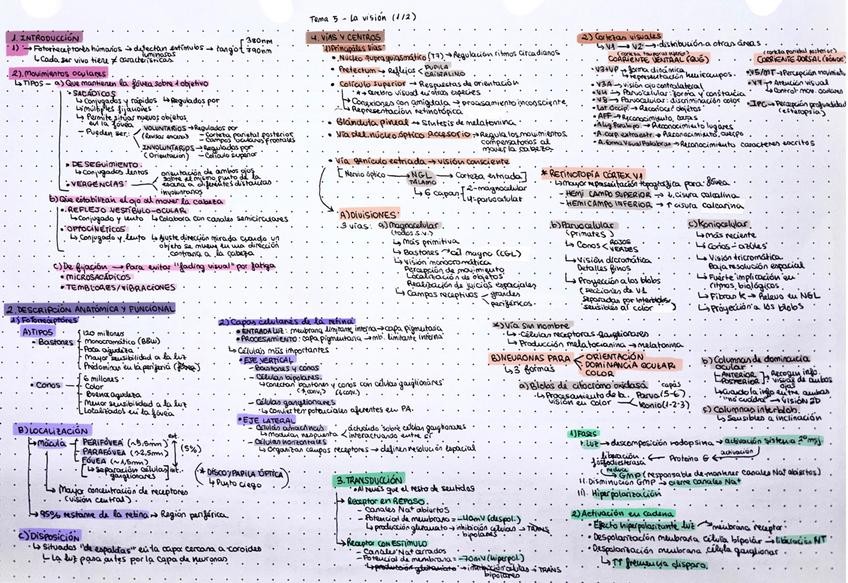 Tema 5 - La visión (1/2)
1. INTRODUCCIÓN
1) → Fotorreceptores humanos → detectan estímulos luminosos → rango 380nm 790nm
↳ Cada ser vivo tiene ≠ características
2). Movimientos oculares
↳ TIPOS - a) Que mantienen la fóvea sobre 1 objetivo
• SACÁDICOS
↳ Conjugados y rápidos ↳ Regulados por múltiples fijaciones
↳ Permite situar nuevos objetos en la fóvea
↳ Pueden ser:
VOLUNTARIOS → Regulados por
- Corteza parietal posterior
- Campos oculares frontales
INVOLUNTARIOS → Regulados por
(Orientación) - Colículo superior
• DE SEGUIMIENTO
↳ Conjugados lentos
• VERGENCIAS
orientación de ambos ojos sobre el mismo punto de la escena a diferentes distancias
involuntarios
b) Que estabilizan el ojo al mover la cabeza
• REFLEJO VESTÍBULO-OCULAR
↳ Conjugado y lento ↳ Colabora con canales semicirculares
• OPTOCINÉTICOS
↳ Conjugado y lento ↳ Ajuste dirección mirada cuando un objeto se mueve en una dirección contraria a la cabeza
c) De fijación → Para evitar "fading visual" por fatiga
• MICROSACÁDICOS
• TEMBLORES/VIBRACIONES
2. DESCRIPCIÓN ANATÓMICA Y FUNCIONAL
1) Fotorreceptores
A) TIPOS
• Bastones
120 millones
Monocromático (B&W)
Poca agudeza
Mayor sensibilidad a la luz
Predominan en la periferia (fóvea)
• Conos
6 millones
Color
Buena agudeza
Menor sensibilidad a la luz
Localizados en la fóvea
B) LOCALIZACIÓN
↳ Mácula
PERIFÓVEA (~5,5mm)
PARAFÓVEA (~2,5mm)
FÓVEA (~1,5mm)
(5%)
↳ Separación células ganglionares
↳ Mayor concentración de receptores (visión central)
↳ 95% restante de la retina → Región periférica
C) DISPOSICIÓN
↳ Situados "de espaldas" en la capa cercana a coroides
↳ La luz pasa antes por la capa de neuronas
2) Capas celulares de la retina
• ENTRADA LUZ: membrana limitante interna → capa pigmentaria
• PROCESAMIENTO: capa pigmentaria → mb. limitante interna
↳ Células más importantes
• EJE VERTICAL
- Bastones y conos
- Células bipolares
↳ Conectan bastones y conos con células ganglionares
- Células ganglionares
↳ Convierten potenciales aferentes en PA.
• EJE LATERAL
- Células amacrinas
↳ Modulan respuesta
actuando sobre células ganglionares
interactuando entre sí
- Células horizontales
↳ Organizar campos receptores → definen resolución espacial
* DISCO/PAPILA ÓPTICA
↳ Punto ciego
3. TRANSDUCCIÓN
* Al revés que el resto de sentidos
↳ Receptor en REPOSO
- Canales Na+ abiertos
- Potencial de membrana = -40mV (despol.)
↳ producción glutamato → inhibición células → TRANS bipolares
↳ Receptor con ESTÍMULO
- Canales Na+ cerrados
- Potencial de membrana = -70mV (hiperpol.)
↳ producción glutamato → inhibición células → TRANS bipolares
4. VÍAS Y CENTROS
1) Principales vías
• Núcleo supraquiasmático → Regulación ritmos circadianos
• Pretectum → Reflejos PUPILA CRISTALINO
• Colículo superior → Respuestas de orientación
↳ * Cerebro visual en otras especies
↳ Conexiones con amígdala → procesamiento inconsciente
↳ Representación retinotópica
• Glándula pineal → Síntesis de melatonina
• Vía del núcleo óptico accesorio → Regula los movimientos compensatorios al mover la cabeza.
• Vía genículo estriada → visión consciente
[Nervio óptico → NGL TÁLAMO → Corteza estriada]
↳ 6 capas
2-magnocelular
4-parvocelular
A) DIVISIONES:
3 vías:
a) Magnocelular
(todos s.v.)
↳ Más primitiva
↳ Bastones → al magno (CGL)
↳ Visión monocromática
Percepción de movimiento
Localización de objetos
Realización de juicios espaciales
↳ Campos receptivos
grandes
periféricos
b) Parvocelular
(primates)
↳ Conos ROJOS VERDES
↳ Visión dicromática
Detalles finos
↳ Proyección a los blobs
(secciones de V1 separadas por interblobs sensibles al color)
c) Koniocelular
↳ Más reciente
↳ Conos - azules
↳ Visión tricromática
Baja resolución espacial
↳ Fuerte implicación en ritmos biológicos
↳ Fibran K → Relevo en NGL
↳ Proyección a los blobs
* Vía sin nombre
↳ Células receptoras ganglionares
↳ Producción melatocianina → melatonina
B) NEURONAS PARA
ORIENTACIÓN
DOMINANCIA OCULAR
COLOR
↳ 3 formas
a) Blobs de citocromo oxidasa
↳ Procesamiento de la visión en color
capas
Parvo (5-6)
Konio (1-2-3)
b) Columnas de dominancia ocular
ANTERIOR
POSTERIOR
Recogen info. visual de ambos ojos
↳ Cuando la info. entre ambas "no cuadra" → VISIÓN 3D
c) Columnas interblob
↳ Sensibles a inclinación
2) Cortezas visuales
↳ V1 → V2 → distribución a otras áreas
(corteza temporal inferior)
CORRIENTE VENTRAL (QUÉ)
• V3+VP → forma dinámica
↳ representación hemicampos
• V3A → visión ojo contralateral
• V4 → Parvocelular: forma y constancia
• V8 → Parvocelular: discriminación color
• Lat. Occip. → Reconocer objetos
• AFF → Reconocimiento caras
• A. lug. Parahipo. → Reconocimiento lugares
• A. corp. extraestr. → Reconocimiento cuerpo
• A. Forma Visual Palabras → Reconocimiento caracteres escritos
(corteza parietal posterior)
CORRIENTE DORSAL (DÓNDE)
• V5/MT → Percepción movimiento
• V7 → Atención visual
↳ Control mov. oculares
• IPC → Percepción profundidad (estereopsia)
* RETINOTOPÍA CÓRTEX V1
↳ Mayor representación topográfica para fóvea
- HEMICAMPO SUPERIOR → ↓ cisura calcarina
- HEMICAMPO INFERIOR → ↑ cisura calcarina
1) Fases
I. LUZ → descomposición rodopsina → activación sistema 2º msj.
liberación fosfodiesterasa ← Proteína G ← activación
reduce
↳ GMP (responsable de mantener canales Na+ abiertos)
II. Disminución GMP → cierre canales Na+
III. Hiperpolarización
2) Activación en cadena
- Efecto hiperpolarizante luz → membrana receptor
- Despolarización membrana célula bipolar → liberación NT
- Despolarización membrana célula ganglionar
↳ ↑↑ frecuencia disparo